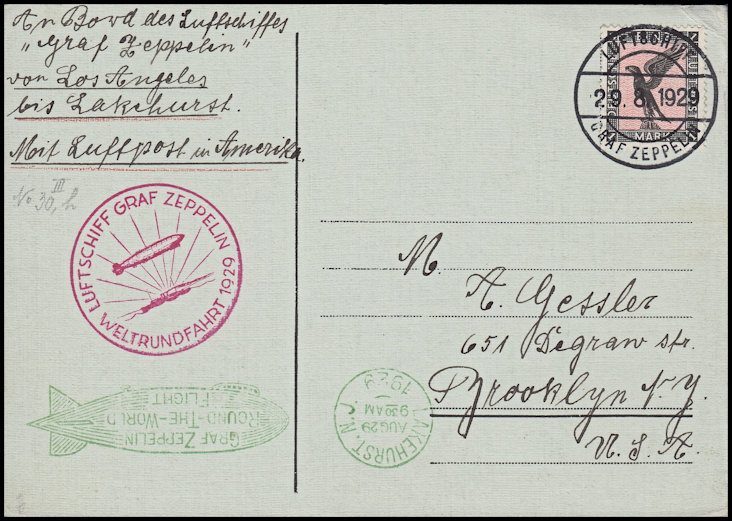 An Bord des Luftschiffes
„Graf Zeppelin"
von Los Angeles
bis Lakehurst.
Mit Luftpost in Amerika.
LUFTSCHIFF GRAF ZEPPELIN
WELTRUNDFAHRT 1929
GRAF ZEPPELIN
ROUND-THE-WORLD
FLIGHT
LUFTSCHIFF
29.8.1929
GRAF ZEPPELIN
1
MARK
M.
A. Gessler
651 Degraw str.
Brooklyn N.Y.
U.S.A.
LAKEHURST, N.J.
AUG 29
9 30 AM
1929